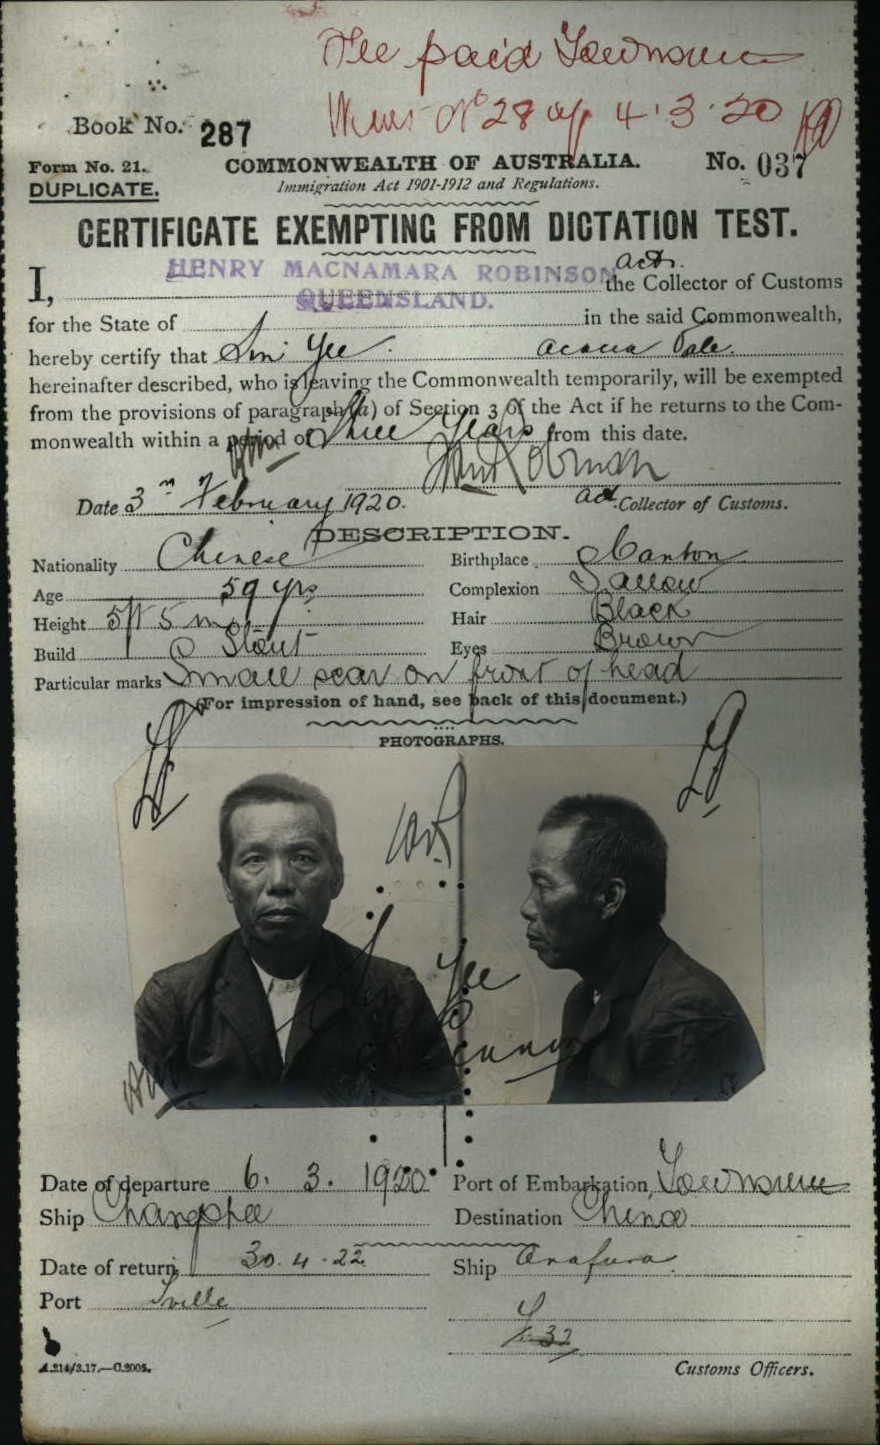 Fee paid Townsville
No 28 of 4.3.20
Book No. 287
Form No. 21. COMMONWEALTH OF AUSTRALIA. No. 037
DUPLICATE. Immigration Act 1901-1912 and Regulations.
CERTIFICATE EXEMPTING FROM DICTATION TEST.
I, HENRY MACNAMARA ROBINSON act. the Collector of Customs
for the State of QUEENSLAND. in the said Commonwealth,
hereby certify that Yee Vale.
hereinafter described, who is leaving the Commonwealth temporarily, will be exempted
from the provisions of paragraph (a) of Section 3 of the Act if he returns to the Com-
monwealth within a period of three years from this date.
Date 3rd February 1920. act. Collector of Customs.
DESCRIPTION.
Nationality Chinese Birthplace Canton
Age 59 yrs Complexion Sallow
Height 5ft 5 in Hair Black
Build Stout Eyes Brown
Particular marks Small scar on front of head
(For impression of hand, see back of this document.)
PHOTOGRAPHS.
Yee
Date of departure 6. 3. 1920 Port of Embarkation, Townsville
Ship Changsha Destination China
Date of return 30.4.22 Ship Arafura
Port Tville
A.214/3.17.—C.2005. Customs Officers.